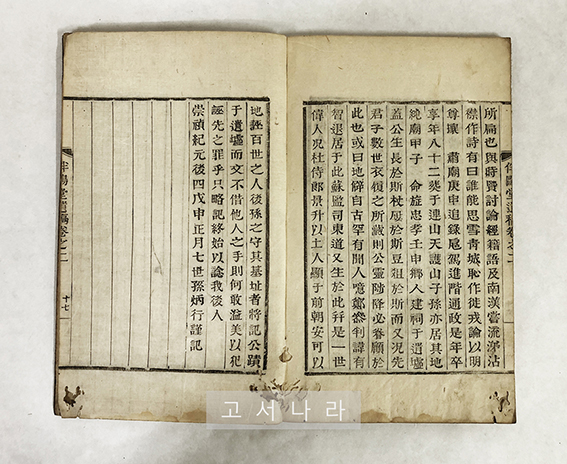 伴鷗堂遺稿卷之二
所扁也與時賢討論經籍語及南漢嘗流涕沾
襟作詩有曰誰能思雪青城恥作徙戎論以明
尊攘 肅廟庚申追錄扈駕進階通政是年卒
享年八十二葬于連山天護山子孫亦居其地
純廟甲子 命旌忠孝壬申鄉人建祠于遺墟
蓋公生長於斯枕屐於斯豆俎於斯而又況先
君子數世衣履之所藏則公靈陟降必眷顧於
此也或曰地僻自古罕有聞人噫鄭參判諱有
智退居于此蘇監司東道又生於此幷是一世
偉人況杜侍郎景升以土人顯于前朝安可以
地誣百世之人後孫之守其基址者將記公蹟
于遺墟而文不借他人之手則何敢溢美以犯
誣先之罪乎只略記終始以諗我後人
崇禎紀元後四戊申正月七世孫炳行謹記
伴鷗堂遺稿卷之二
十七
고서나라